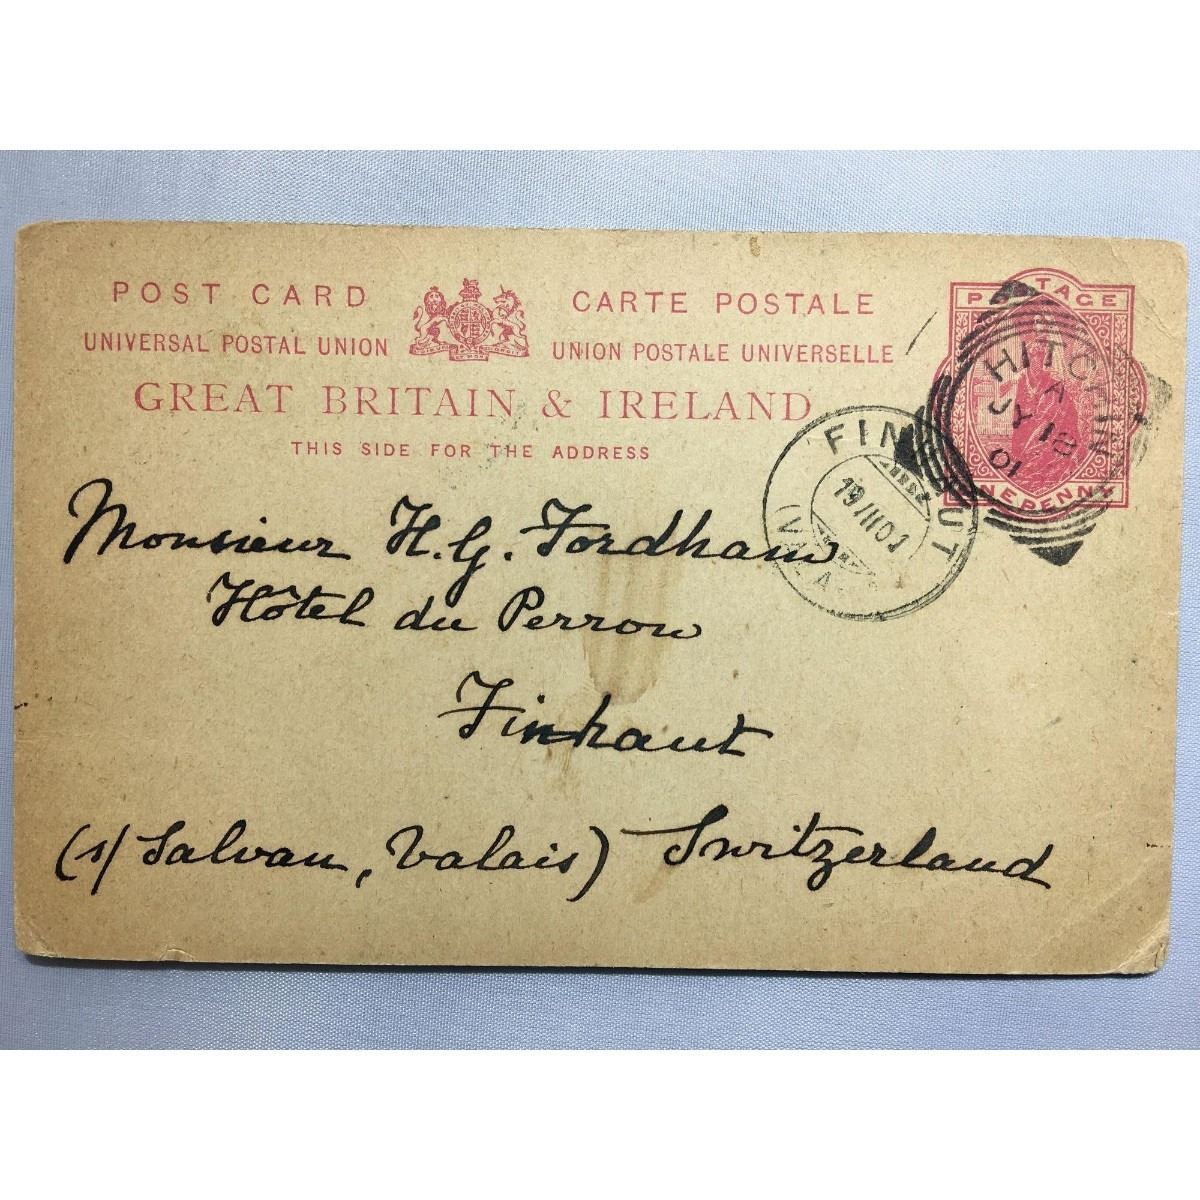 POST CARD CARTE POSTALE
UNIVERSAL POSTAL UNION UNION POSTALE UNIVERSELLE
GREAT BRITAIN & IRELAND
THIS SIDE FOR THE ADDRESS
POSTAGE
ONE PENNY
HITCHIN
A
JY 18
01
FINHAUT
Monsieur H.G. Fordham
Hôtel du Perron
Finhaut
(s/ Salvan, Valais) Switzerland